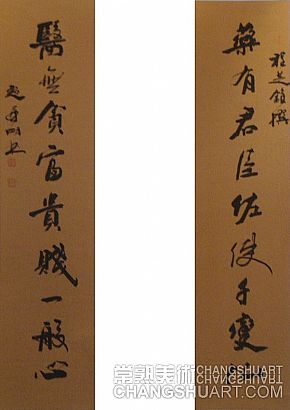 藥有君臣佐使千變
醫無貧富貴賤一般心
常熟美術
CHANGSHUART
CHANGSHUART.COM